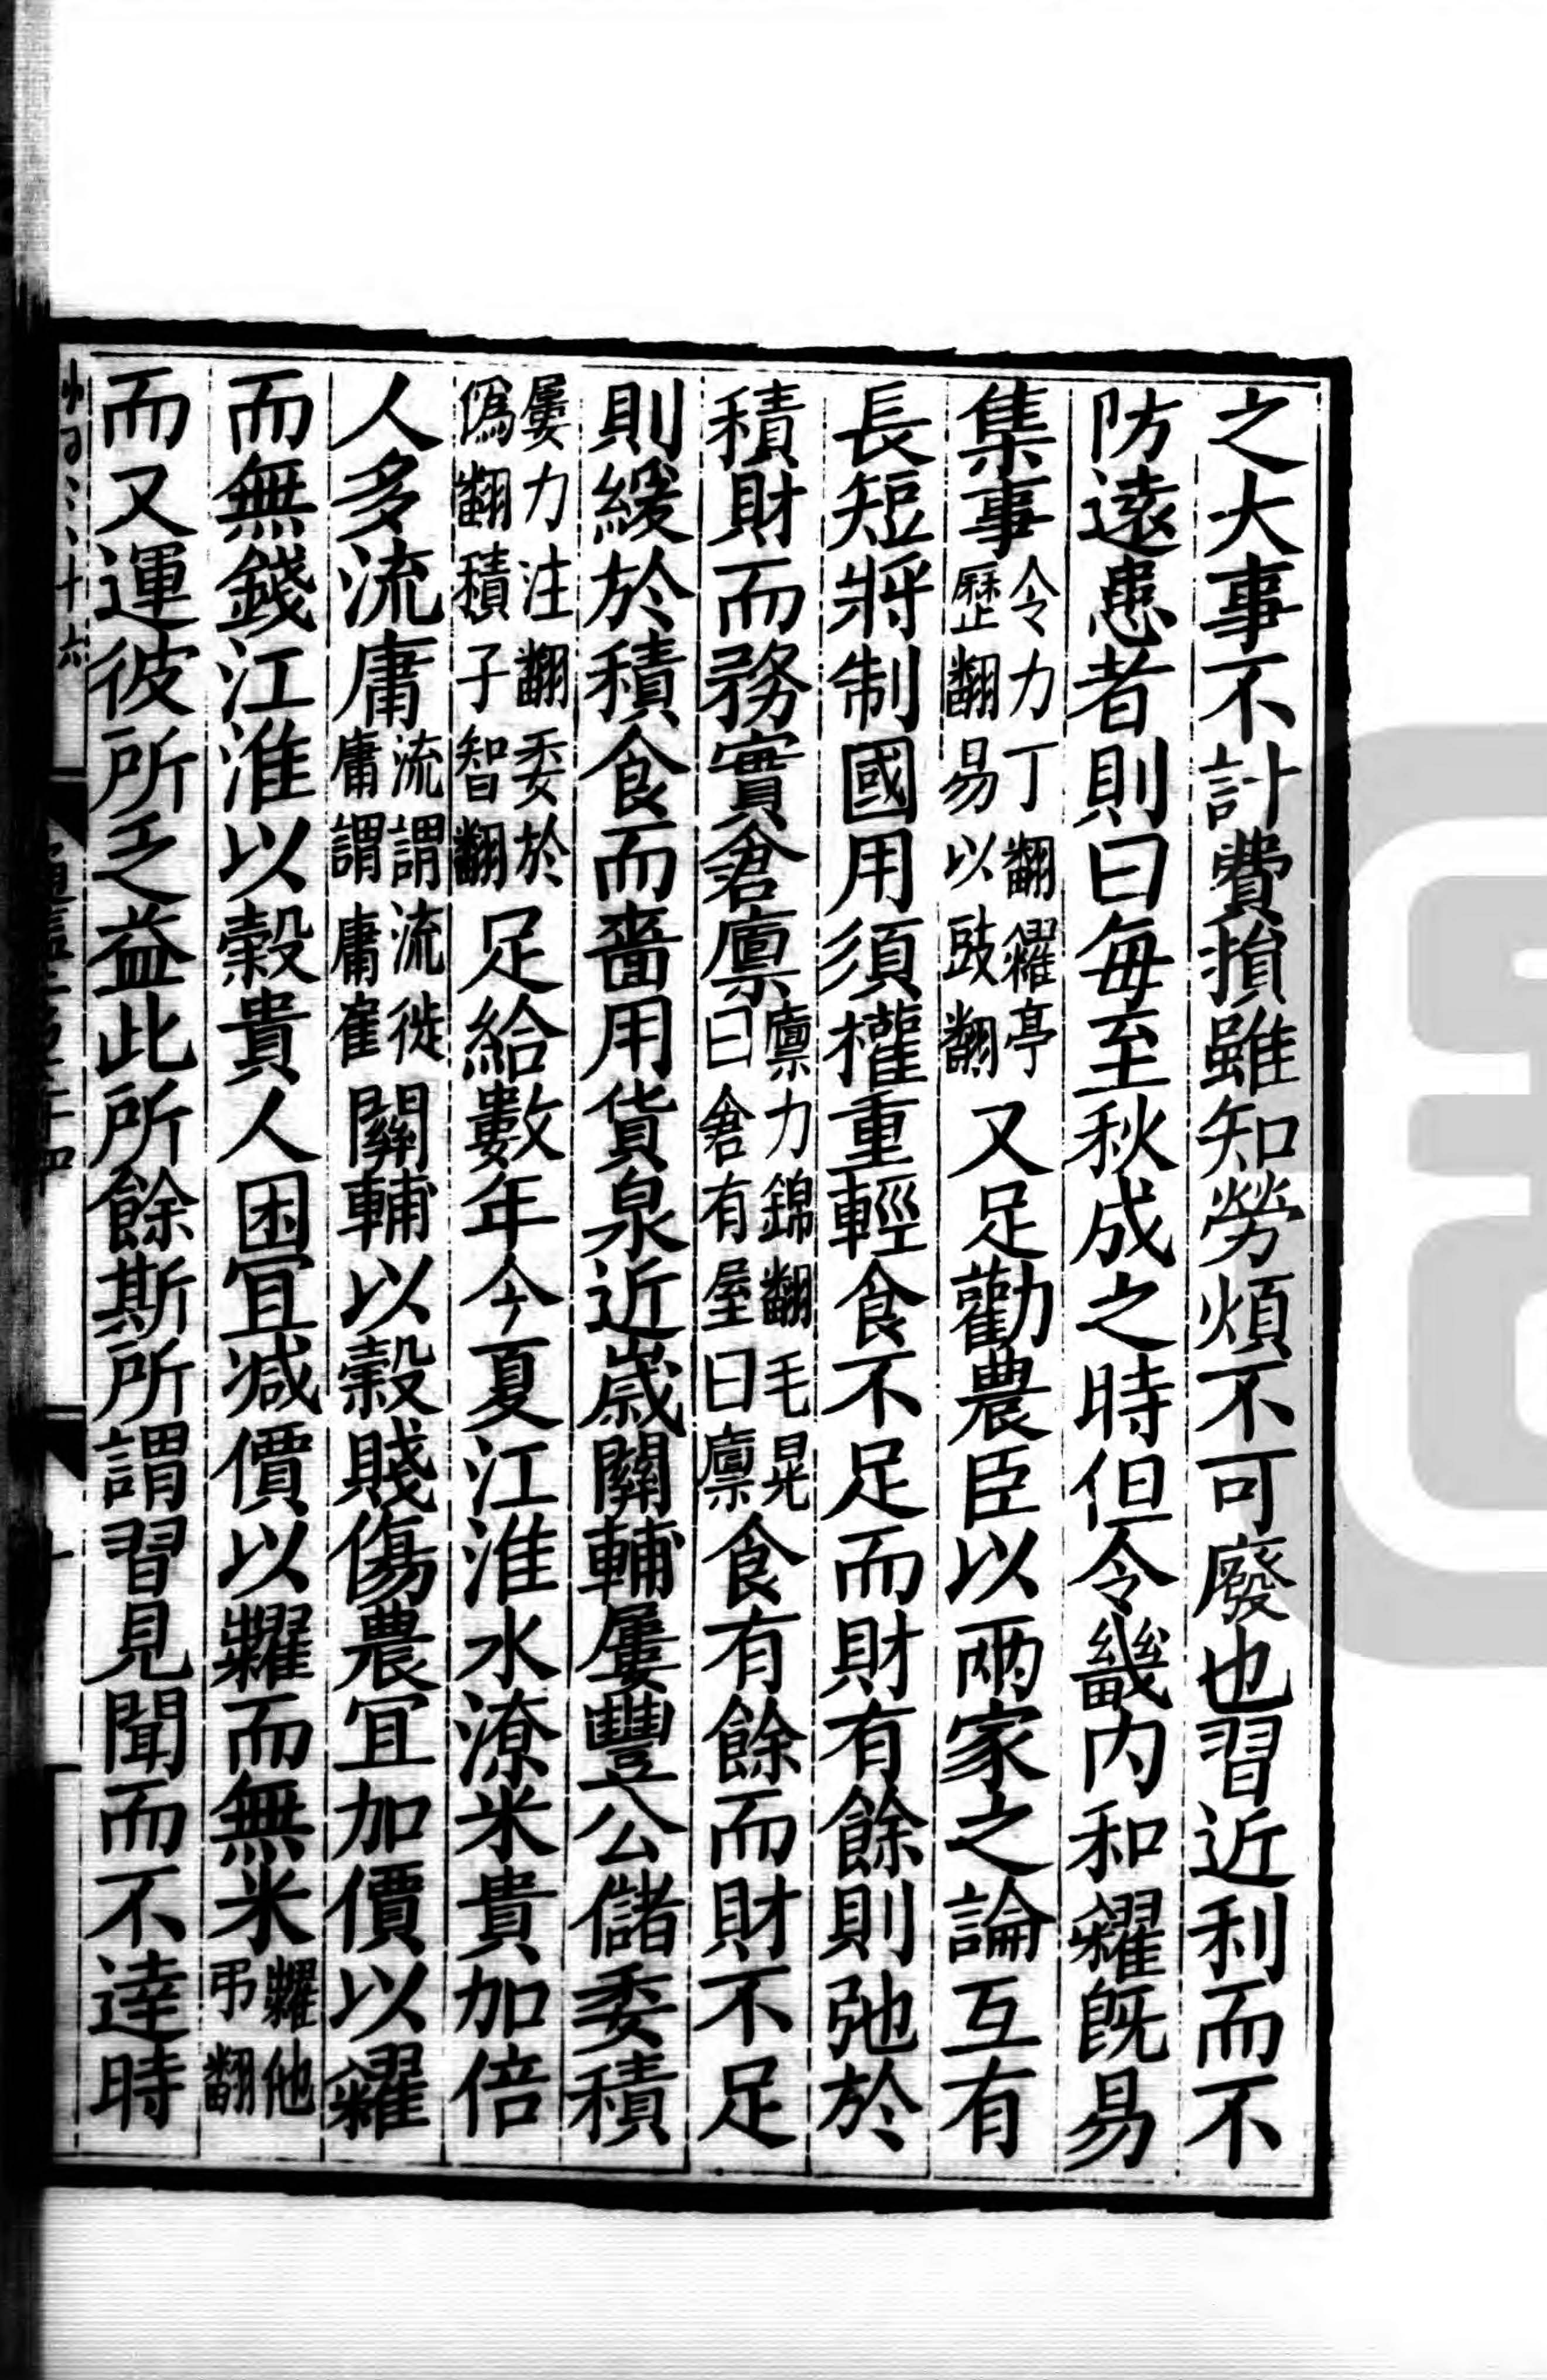 之大事不計費損雖知勞煩不可廢也習近利而不
防遠患者則曰每至秋成之時但令畿内和糴既易
集事令力丁翻糴亭歷翻易以豉翻又足勸農臣以兩家之論互有
長短將制國用須權重輕食不足而財有餘則弛於
積財而務實倉廪廪力錦翻毛晃曰倉有屋曰廪食有餘而財不足
則緩於積食而嗇用貨泉近歳關輔屢豐公儲委積
屢力注翻委於偽翻積子智翻足給數年今夏江淮水潦米貴加倍
人多流庸流謂流徙庸謂庸雇關輔以穀賤傷農冝加價以糴
而無錢江淮以穀貴人困冝減價以糶而無米糶他弔翻
而又運彼所乏益此所餘斯所謂習見聞而不達時